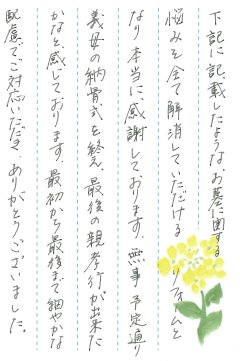 下記に記載したような、お墓に関する
悩みを全て解消していただけるリフォームと
なり本当に、感謝しております。無事予定通り
義母の納骨式を終え、最後の親孝行が出来た
かなと、感じております。最初から最後まで細やかな
配慮でご対応いただき、ありがとうございました。